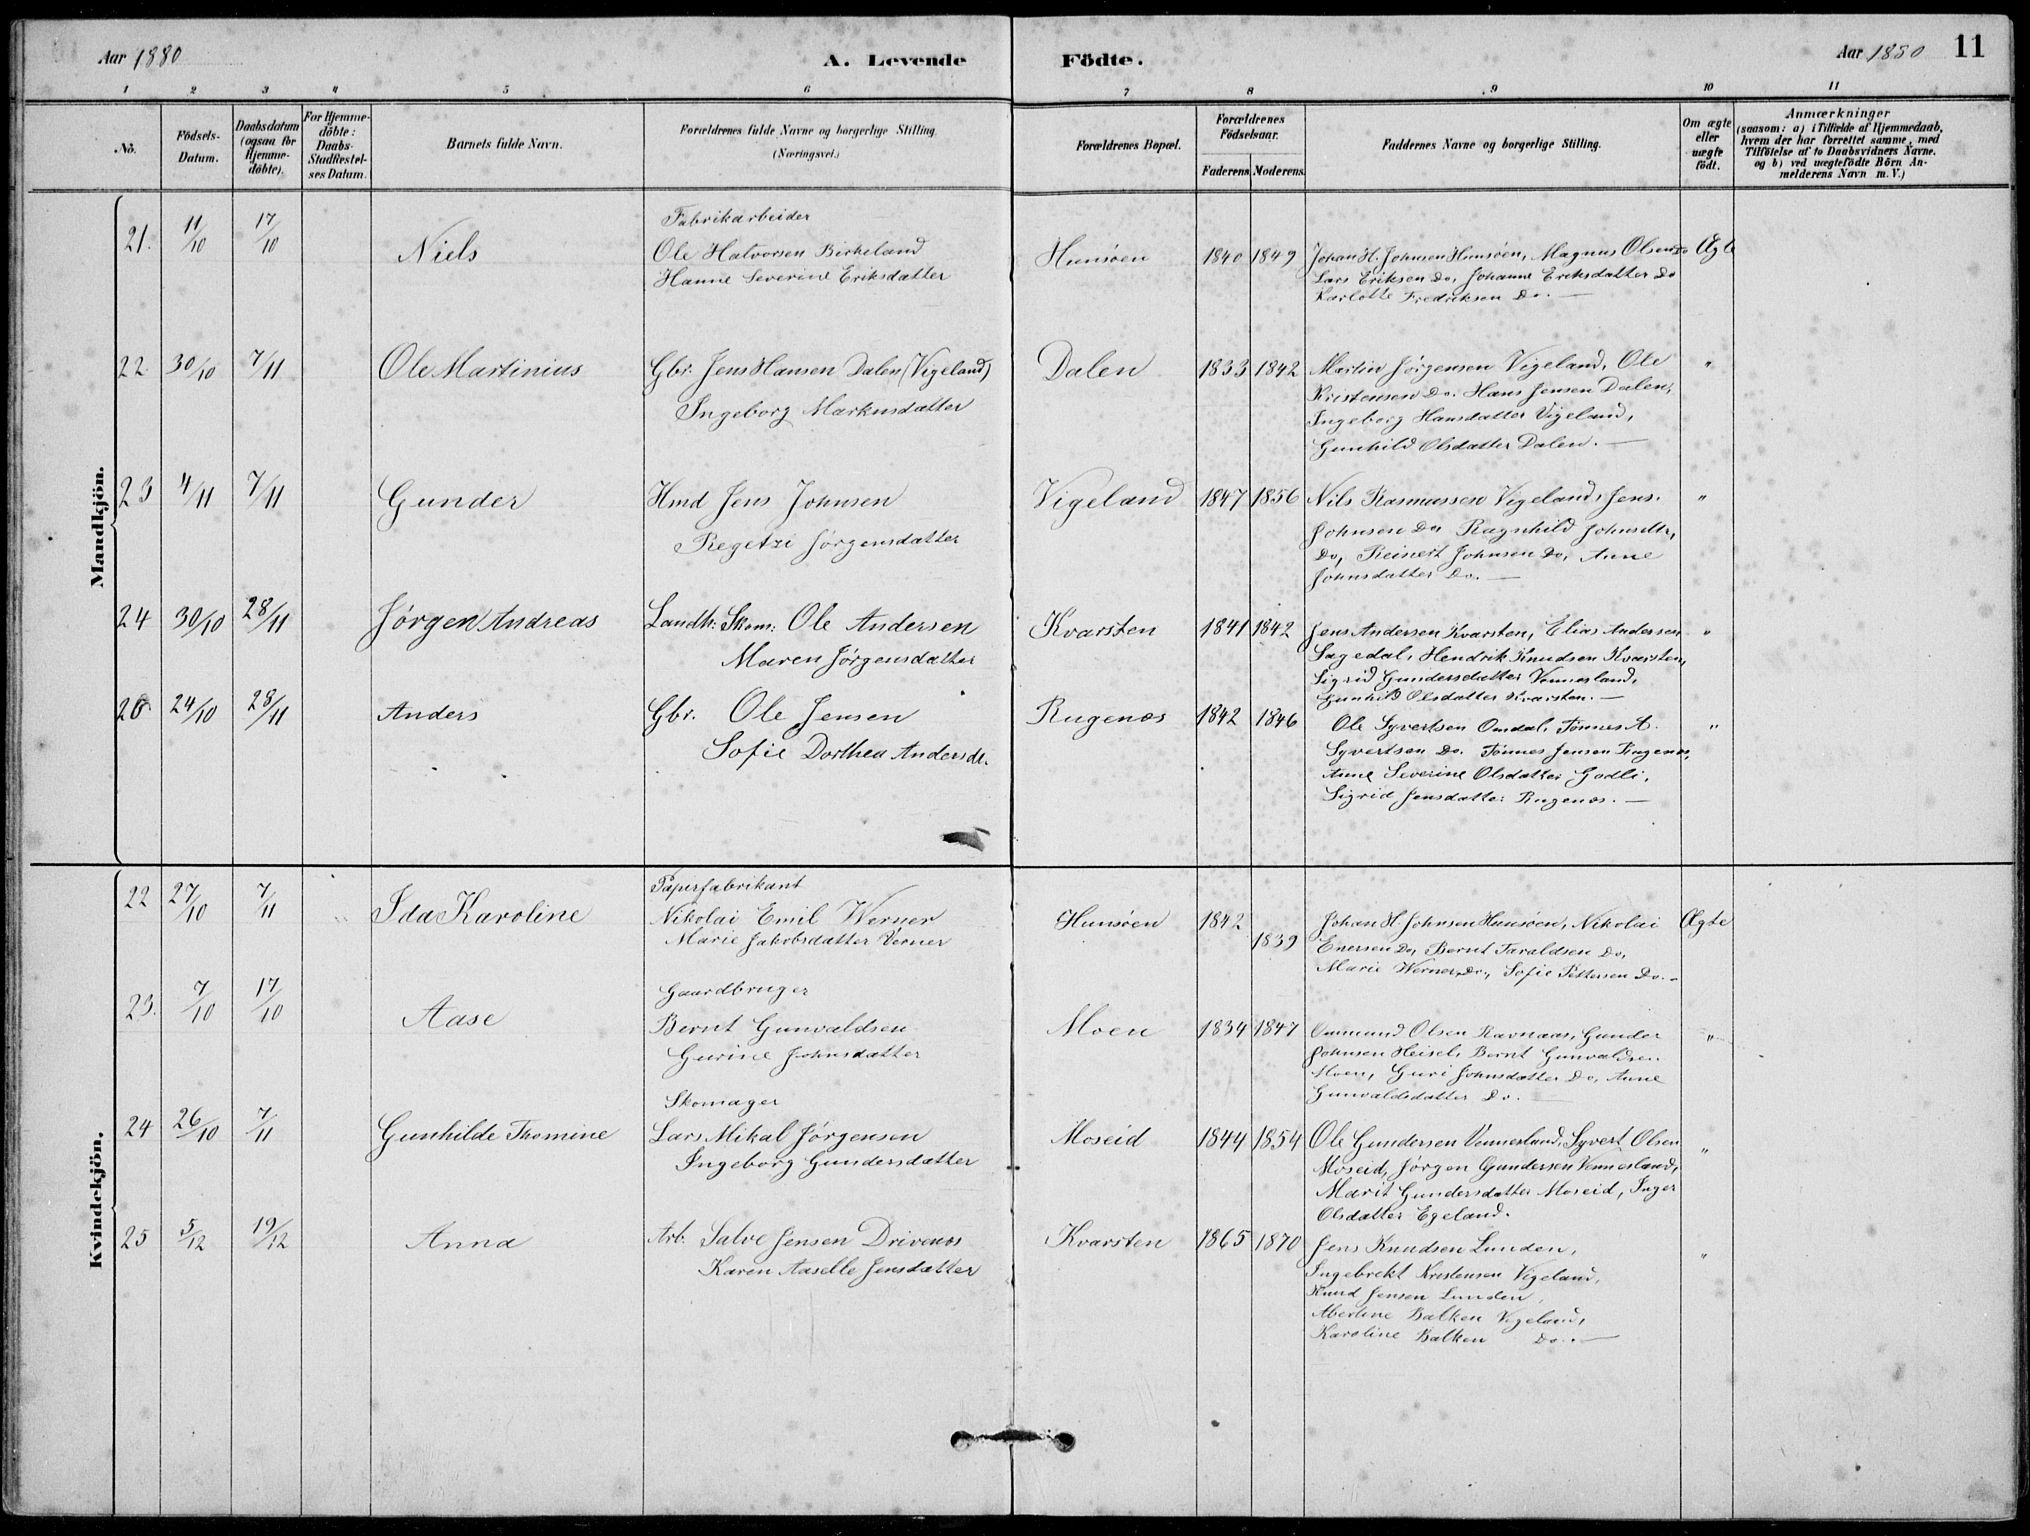 Aar 1880
A. Levende Födte.
Aar 1880 11
1 2 3 4 5 6 7 8 9 10 11
No.
Födsels-Datum.
Daabsdatum (ogsaa för Hjemme-döbte).
For Hjemme-döbte: Daabs-Stadfæstel-ses Datum.
Barnets fulde Navn.
Forældrenes fulde Navne og borgerlige Stilling. (Næringsvei.)
Forældrenes Bopæl.
Forældrenes Födselsaar.
Faderens Moderens
Faddernes Navne og borgerlige Stilling.
Om ægte eller uægte födt.
Anmærkninger
(saasom: a) i Tilfælde af Hjemmedaab, hvem der har forrettet samme, med Tilföielse af to Daabsvidners Navne. og b) ved uægtefödte Börn An-melderens Navn m. V.)
Mandkjön.
21. 11/10 17/10 Niels
Fabrikarbeider
Ole Halvorsen Birkeland
Hanne Severine Eriksdatter
Hunsöen 1840 1849
Johan H. Johnsen Hunsöen, Magnus Olsen Do Ægte
Lars Eriksen Do, Johanne Eriksdatter Do
Karlotte Fredriksen Do. —
22. 30/10 7/11 Ole Martinius
Gbr. Jens Hansen Dalen (Vigeland)
Ingeborg Markusdatter
Dalen 1833 1842
Martin Jørgensen Vigeland, Ole "
Kristensen Do. Hans Jensen Dalen,
Ingeborg Hansdatter Vigeland,
Gunhild Olsdatter Dalen. —
23 4/11 7/11 Gunder
Hmd Jens Johnsen
Regetzi Jørgensdatter
Vigeland 1847 1856
Nils Rasmussen Vigeland, Jens "
Johnsen Do, Ragnhild Johnsdtr,
Do, Reinert Johnsen Do, Anne
Johnsdatter Do. —
24 30/10 28/11 Jørgen Andreas
Landh: Skom: Ole Andersen
Maren Jørgensdatter
Kvarsten 1841 1842
Jens Andersen Kvarsten, Elias Andersen "
Sagedal, Hendrik Knudsen Kvarsten,
Sigrid Gundersdatter Vennesland,
Gunhild Olsdatter Kvarsten. —
25. 24/10 28/11 Anders
Gbr. Ole Jensen
Sofie Dorthea Andersdt.
Rugenæs 1842 1846
Ole Syvertsen Omdal, Tønnes A. "
Syvertsen Do. Tønnes Jensen Rugenæs,
Anne Severine Olsdatter Godli,
Sigrid Jensdatter Rugenæs. —
Kvindekjön.
22 27/10 7/11 Ida Karoline
Paperfabrikant
Nikolai Emil Werner
Marie Jakobsdatter Verner
Hunsöen 1842 1839
Johan H. Johnsen Hunsöen, Nikolai Ægte
Enersen Do, Bernt Taraldsen Do,
Marie Werner, Do, Sofie Pettersen Do. -
23. 7/10 17/10 Aase
Gaardbruger
Bernt Gunvaldsen
Gurine Johnsdatter
Moen 1834 1847
Ommund Olsen Ravnaas, Gunder "
Johnsen Heisel, Bernt Gunvaldsen
Moen, Guri Johnsdatter Do, Anne
Gunvaldsdatter Do. —
24 26/10 7/11 Gunhilde Thomine
Skomager
Lars Mikal Jørgensen
Ingeborg Gundersdatter
Moseid 1844 1854
Ole Gundersen Vennesland, Syvert Olsen "
Moseid, Jørgen Gundersen Vennesland,
Marit Gundersdatter Moseid, Inger
Olsdatter Egeland.
25 5/12 19/12 Anna
Arb. Salve Jensen Drivenæs
Karen Aaselle Jensdatter
Kvarsten 1865 1870
Jens Knudsen Lunden, "
Ingebrekt Kristensen Vigeland,
Knud Jensen Lunden,
Abertine Balken Vigeland,
Karoline Balken Do. —